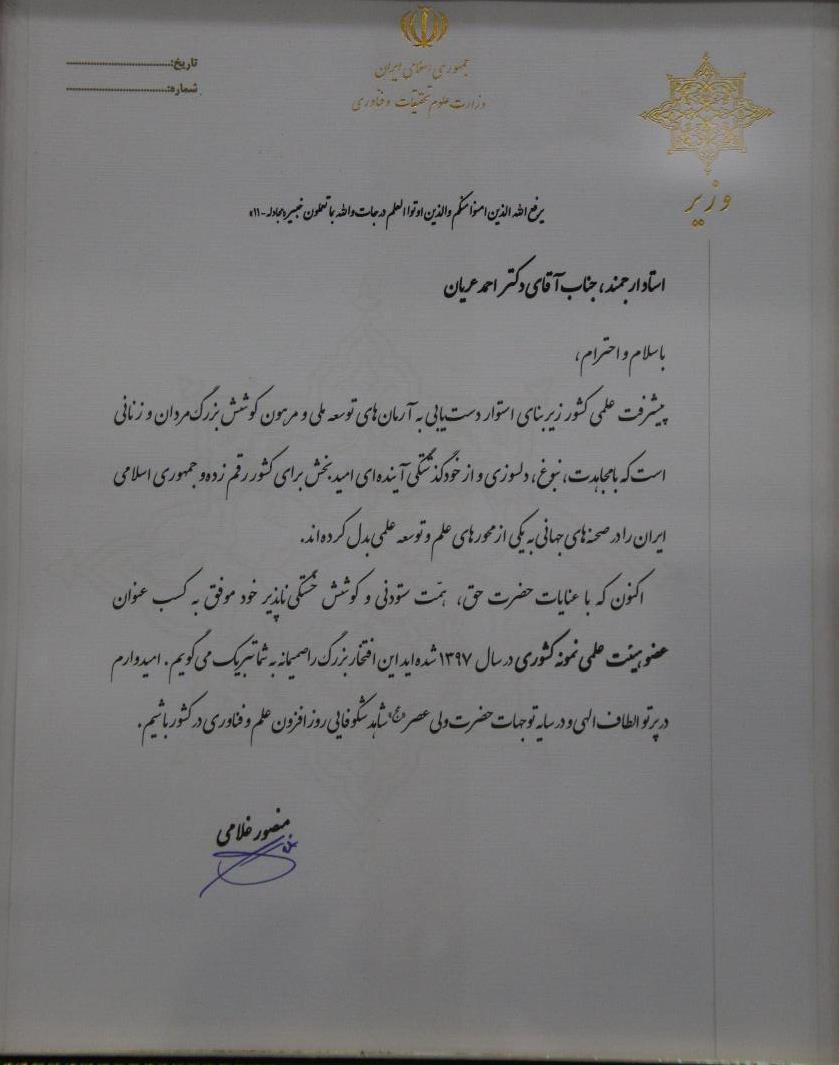 جمهوری اسلامی ایران
وزارت علوم تحقیقات و فناوری
تاریخ:
شماره:
وزیر
یرفع الله الذین امنوا منکم والذین اوتوا العلم درجات والله بما تعملون خبیر «مجادله - ۱۱»
استاد ارجمند، جناب آقای دکتر احمد عریان
با سلام و احترام،
پیشرفت علمی کشور زیربنای استوار دست‌یابی به آرمان‌های توسعه ملی و مرهون کوشش بزرگ مردان و زنانی
است که با مجاهدت، نبوغ، دلسوزی و از خودگذشتگی آینده‌ای امید بخش برای کشور رقم زده و جمهوری اسلامی
ایران را در صحنه‌های جهانی به یکی از محورهای علم و توسعه علمی بدل کرده‌اند.
اکنون که با عنایات حضرت حق، همّت ستودنی و کوشش خستگی ناپذیر خود موفق به کسب عنوان
عضو هیئت علمی نمونه کشوری در سال ۱۳۹۷ شده‌اید این افتخار بزرگ را صمیمانه به شما تبریک می‌گویم. امیدوارم
در پرتو الطاف الهی و در سایه توجهات حضرت ولی عصر (عج) شاهد شکوفایی روز افزون علم و فناوری در کشور باشیم.
منصور غلامی